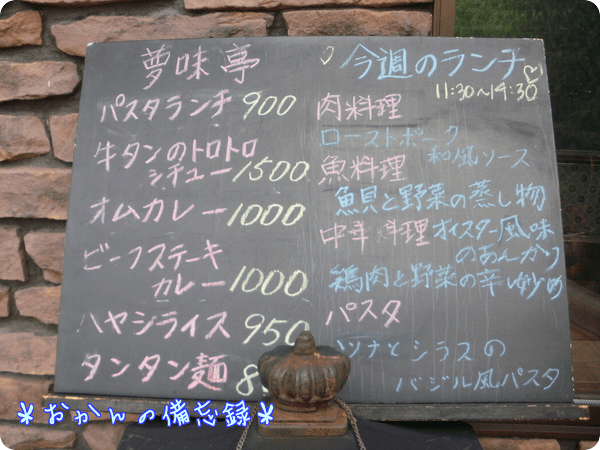 夢味亭
パスタランチ 900
牛タンのトロトロ
シチュー 1500
オムカレー 1000
ビーフステーキ
カレー 1000
ハヤシライス 950
タンタン麺 8
今週のランチ
11:30~14:30
肉料理
ローストポーク
和風ソース
魚料理
魚貝と野菜の蒸し物
オイスター風味
のあんかけ
中華料理
鶏肉と野菜の辛い炒め
パスタ
ツナとシラスの
バジル風パスタ
*おかんの備忘録*